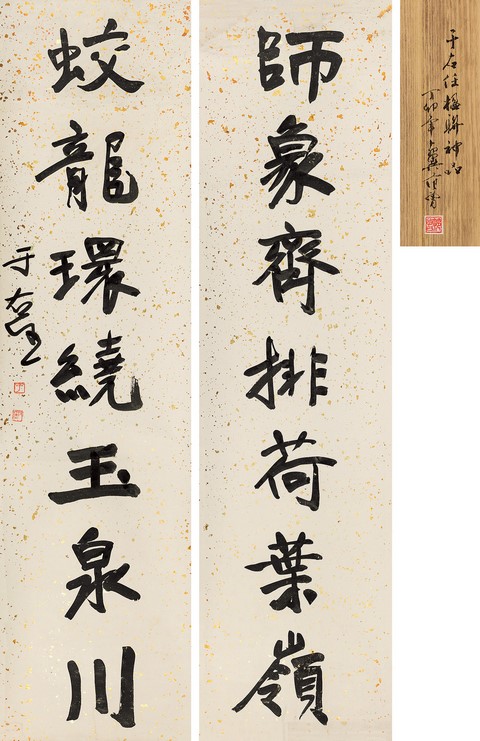 于右任楹聯神品
丁卯年
師象齊排荷葉嶺
蛟龍環繞玉泉川
于右任